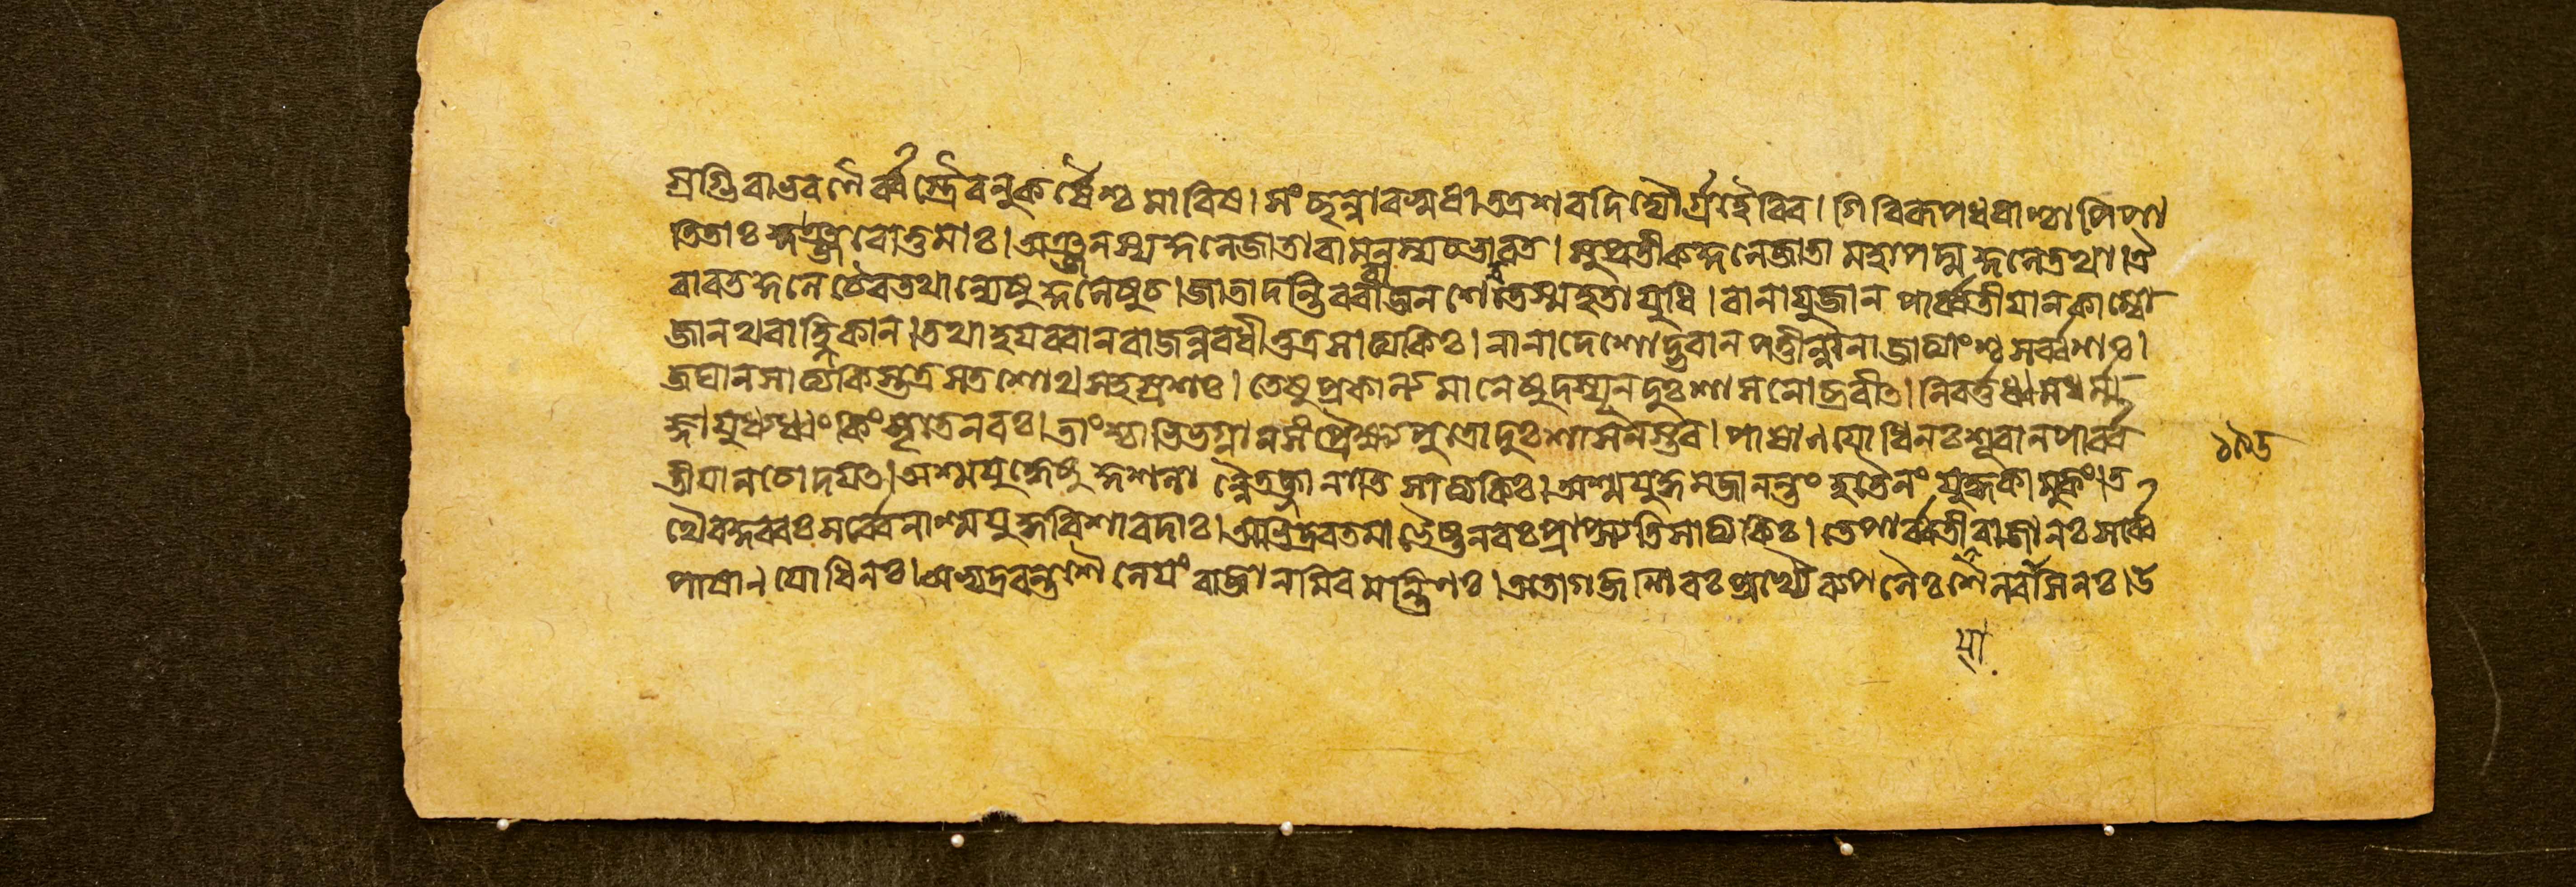 স্রগ্ভিরাভরণৈর্ব্বস্ত্রৈরনুকর্ষৈশ্চ মারিষ। সংছন্নাবসুধা তত্র শরদিদ্যৌর্গ্রহৈরিব। গিরিরূপধরাশ্চাপিপা
তিতাঃ কুঞ্জরোত্তমাঃ। অঞ্জনস্য কুলেজাতা বামনস্য চভারত। সুপ্রতীককুলেজাতা মহাপদ্মকুলেতথা। ঐ
রাবতকুলে চৈবতথান্যেষু কুলেষুচ। জাতাদন্তিবরা রাজন শেরতেস্মহতা যুধি। বানাযুজান পার্ব্বতীয়ান কাম্বো
জানথবাহ্লিকান। তথাহয়বরানরাজন্নবধীত্তত্রসাত্যকিঃ। নানাদেশোদ্ভবান পত্তীন্নানাজাত্যাংশ্চ সর্ব্বশঃ।
জঘানসাত্যকিস্তত্র সতশোথ সহস্রশঃ। তেষু প্রকাল্যমানেষু দস্যূন দুঃশাসনোব্রবীত। নিবর্ত্তধ্বমধর্ম্ম
জ্ঞাযুধ্যধ্বং কিং সৃতেনবঃ। তাংশ্চাতিভগ্নান সংপ্রেক্ষ্য পুত্রোদুঃশাসনস্তব। পাষাণযোধিনঃ শূরান পার্ব্ব
তীয়ানচোদয়ত। অশ্মযুদ্ধেষু কুশলা নৈতজ্জানাতি সাত্যকিঃ। অশ্মযুদ্ধমজানন্তং হতৈনং যুদ্ধকামুকং। ত
থৈবকুরবঃ সর্ব্বেনাশ্মযুদ্ধবিশারদাঃ। অভিদ্রবতমা ভৈষ্টনবঃ প্রাপ্স্যতিসাত্যকিঃ। তেপার্ব্বতীয়া রাজানঃ সর্ব্বে
পাষাণযোধিনঃ। অভ্যদ্রবন্তশৈনেয়ং রাজানমিবমন্ত্রিণঃ। ততোগজশিরঃ প্রখ্যৈরুপলৈঃ শৈলবাসিনঃ। উ